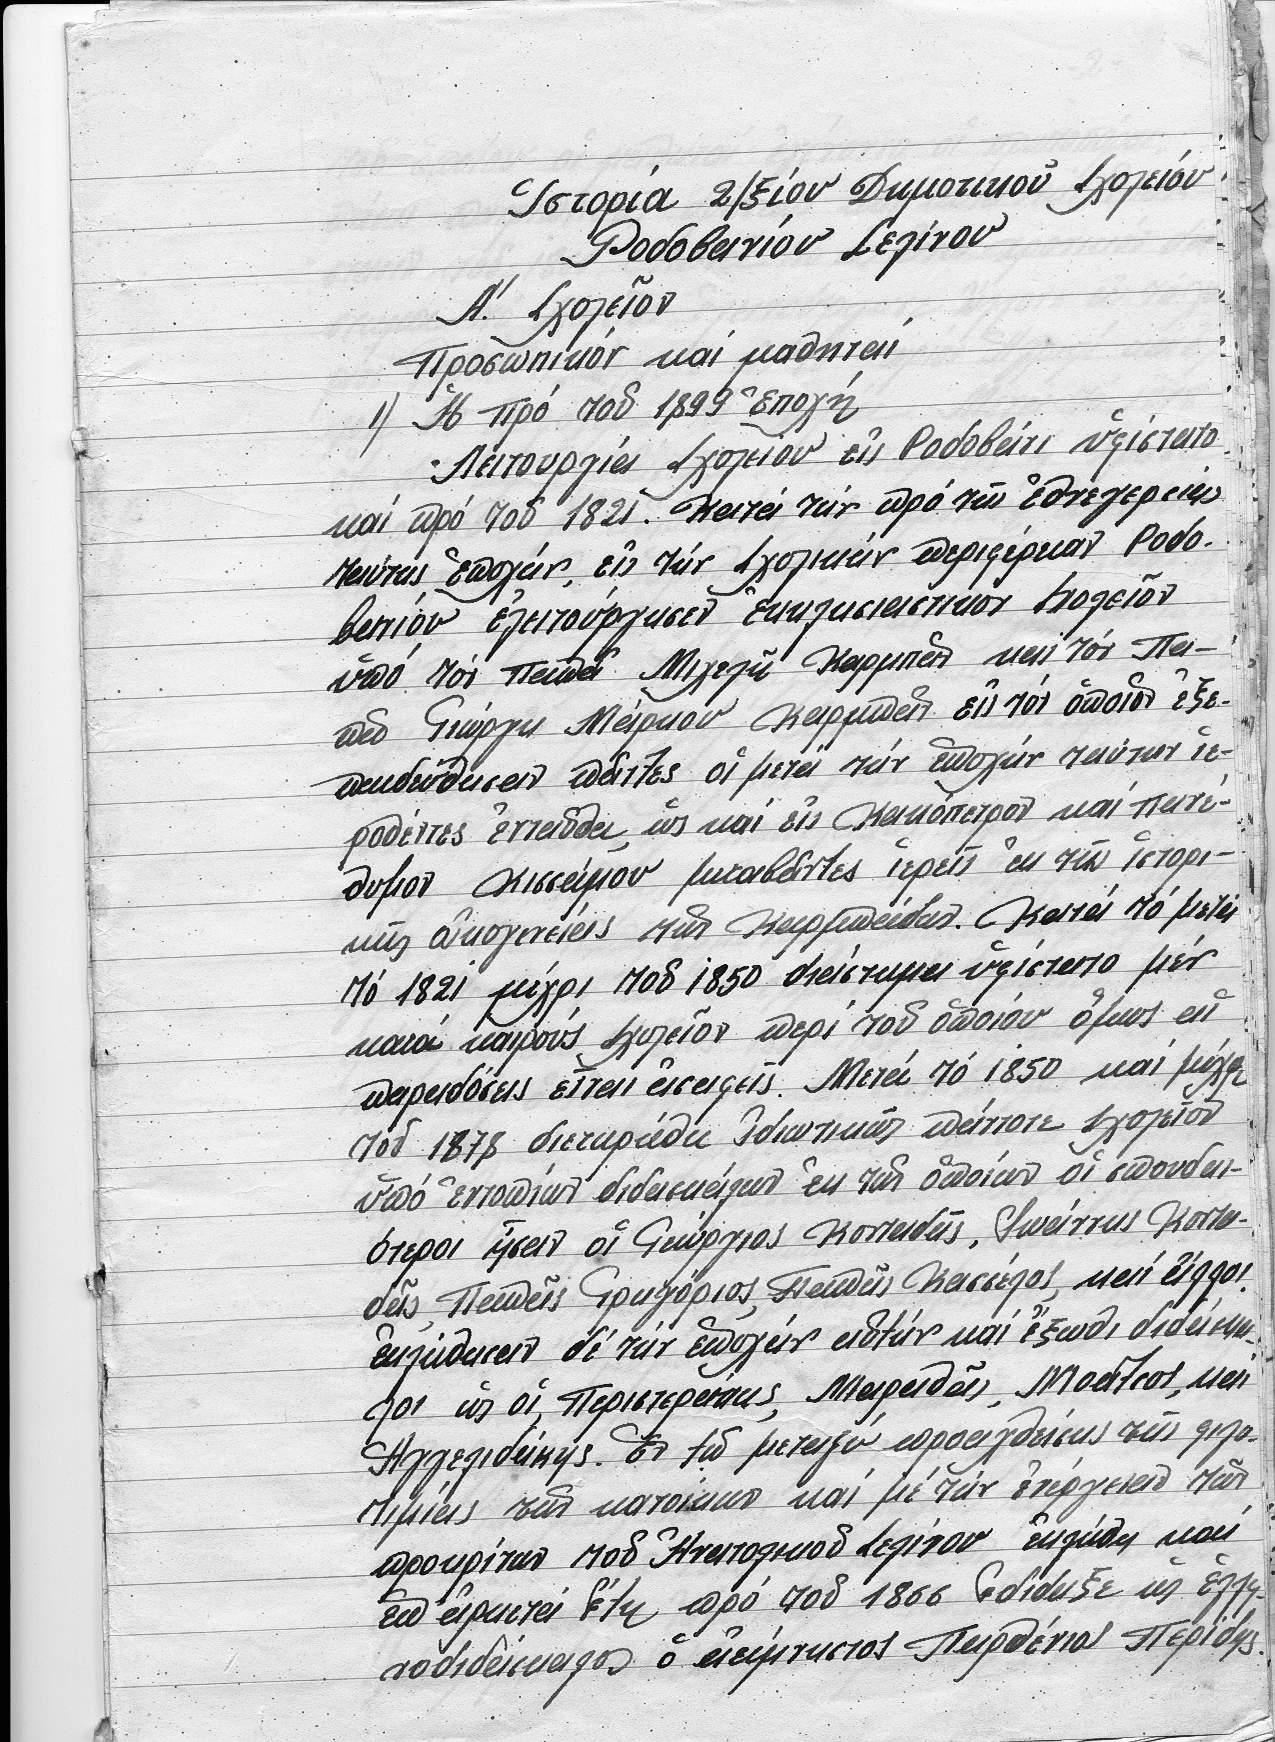 Ἱστορία 2/ξίου Δημοτικοῦ Σχολείου
Ροδοβανίου Σελίνου
Α!' Σχολεῖον
Προσωπικόν καί μαθηταί
1) Ἡ πρό τοῦ 1899 ἐποχή
Λειτουργία Σχολείου εἰς Ροδοβάνι ὑφίστατο
καί πρό τοῦ 1821. Κατά τήν πρό τῆς ἐθνεγερσίας
ταύτης ἐποχήν, εἰς τήν Σχολικήν περιφέρειαν Ροδο-
βανίου ἐλειτούργησεν ἐκκλησιαστικόν Σχολεῖον
ὑπό τόν Παπᾶ Μιχελῆ Καρμπᾶ καί τόν Πα-
πᾶ Γιώργη Μάρκου Καρμπᾶ εἰς τό ὁποῖον ἐξε-
παιδεύθησαν πάντες οἱ μετά τήν ἐποχήν ταύτην ἱε-
ρωθέντες ἐνταῦθα, ὡς καί εἰς Κακόπετρον καί Πανέ-
θυμον Κισσάμου μεταβάντες ἱερεῖς ἐκ τῆς ἱστορι-
κῆς οἰκογενείας τῶν Καρμπάδων. Κατά τό μετά
τό 1821 μέχρι τοῦ 1850 διάστημα ὑφίστατο μέν
κατά καιρούς Σχολεῖον περί τοῦ ὁποίου ὅμως αἱ
παραδόσεις εἶναι ἀσαφεῖς. Μετά τό 1850 καί μέχρι
τοῦ 1878 διετηρήθη ἰδιωτικῶς πάντοτε Σχολεῖον
ὑπό ἐντοπίων διδασκάλων ἐκ τῶν ὁποίων οἱ σπουδαι-
ότεροι ἦσαν οἱ Γεώργιος Κονταδῆς, Ἰωάννης Κοντα-
δῆς, Παπᾶς Γρηγόριος, Παπᾶς Κασσέλος, καί ἄλλοι.
ἐκλήθησαν δέ τήν ἐποχήν αὐτήν καί ἔξωθι διδάσκα-
λοι ὡς οἱ, Περιστεράκης, Μαραθᾶς, Μοάτσος, καί
Ἀγγελιδάκης. Ἐν τῷ μεταξύ προαχθείσης τῆς φιλο-
τιμίας τῶν κατοίκων καί μέ τήν ἐνέργειαν τῶν
προκρίτων τοῦ Ἀνατολικοῦ Σελίνου ἐκλήθη καί
ἐπ' ἀρκετά ἔτη πρό τοῦ 1866 ἐδίδαξε ὡς ἑλλη-
νοδιδάσκαλος ὁ ἀείμνηστος Παρθένιος Περίδης.